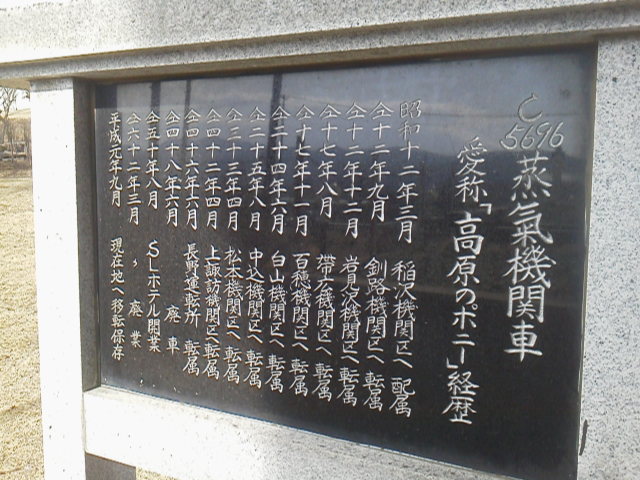 C5696 蒸氣機関車
愛称「高原のポニー」経歴
昭和十二年三月 稲沢機関区へ 配属
仝十二年九月 釧路機関区へ 転属
仝十二年十二月 岩見沢機関区へ 転属
仝十七年八月 帯広機関区へ 転属
仝十七年十一月 百穂機関区へ 転属
仝二十四年六月 白山機関区へ 転属
仝二十五年八月 中込機関区へ 転属
仝三十三年四月 松本機関区へ 転属
仝四十二年四月 上諏訪機関区へ 転属
仝四十六年六月 長野運転所 転属
仝四十八年六月 廃車
仝五十年八月 SLホテル開業
仝六十二年三月 〃 廃業
平成元年九月 現在地へ移転保存